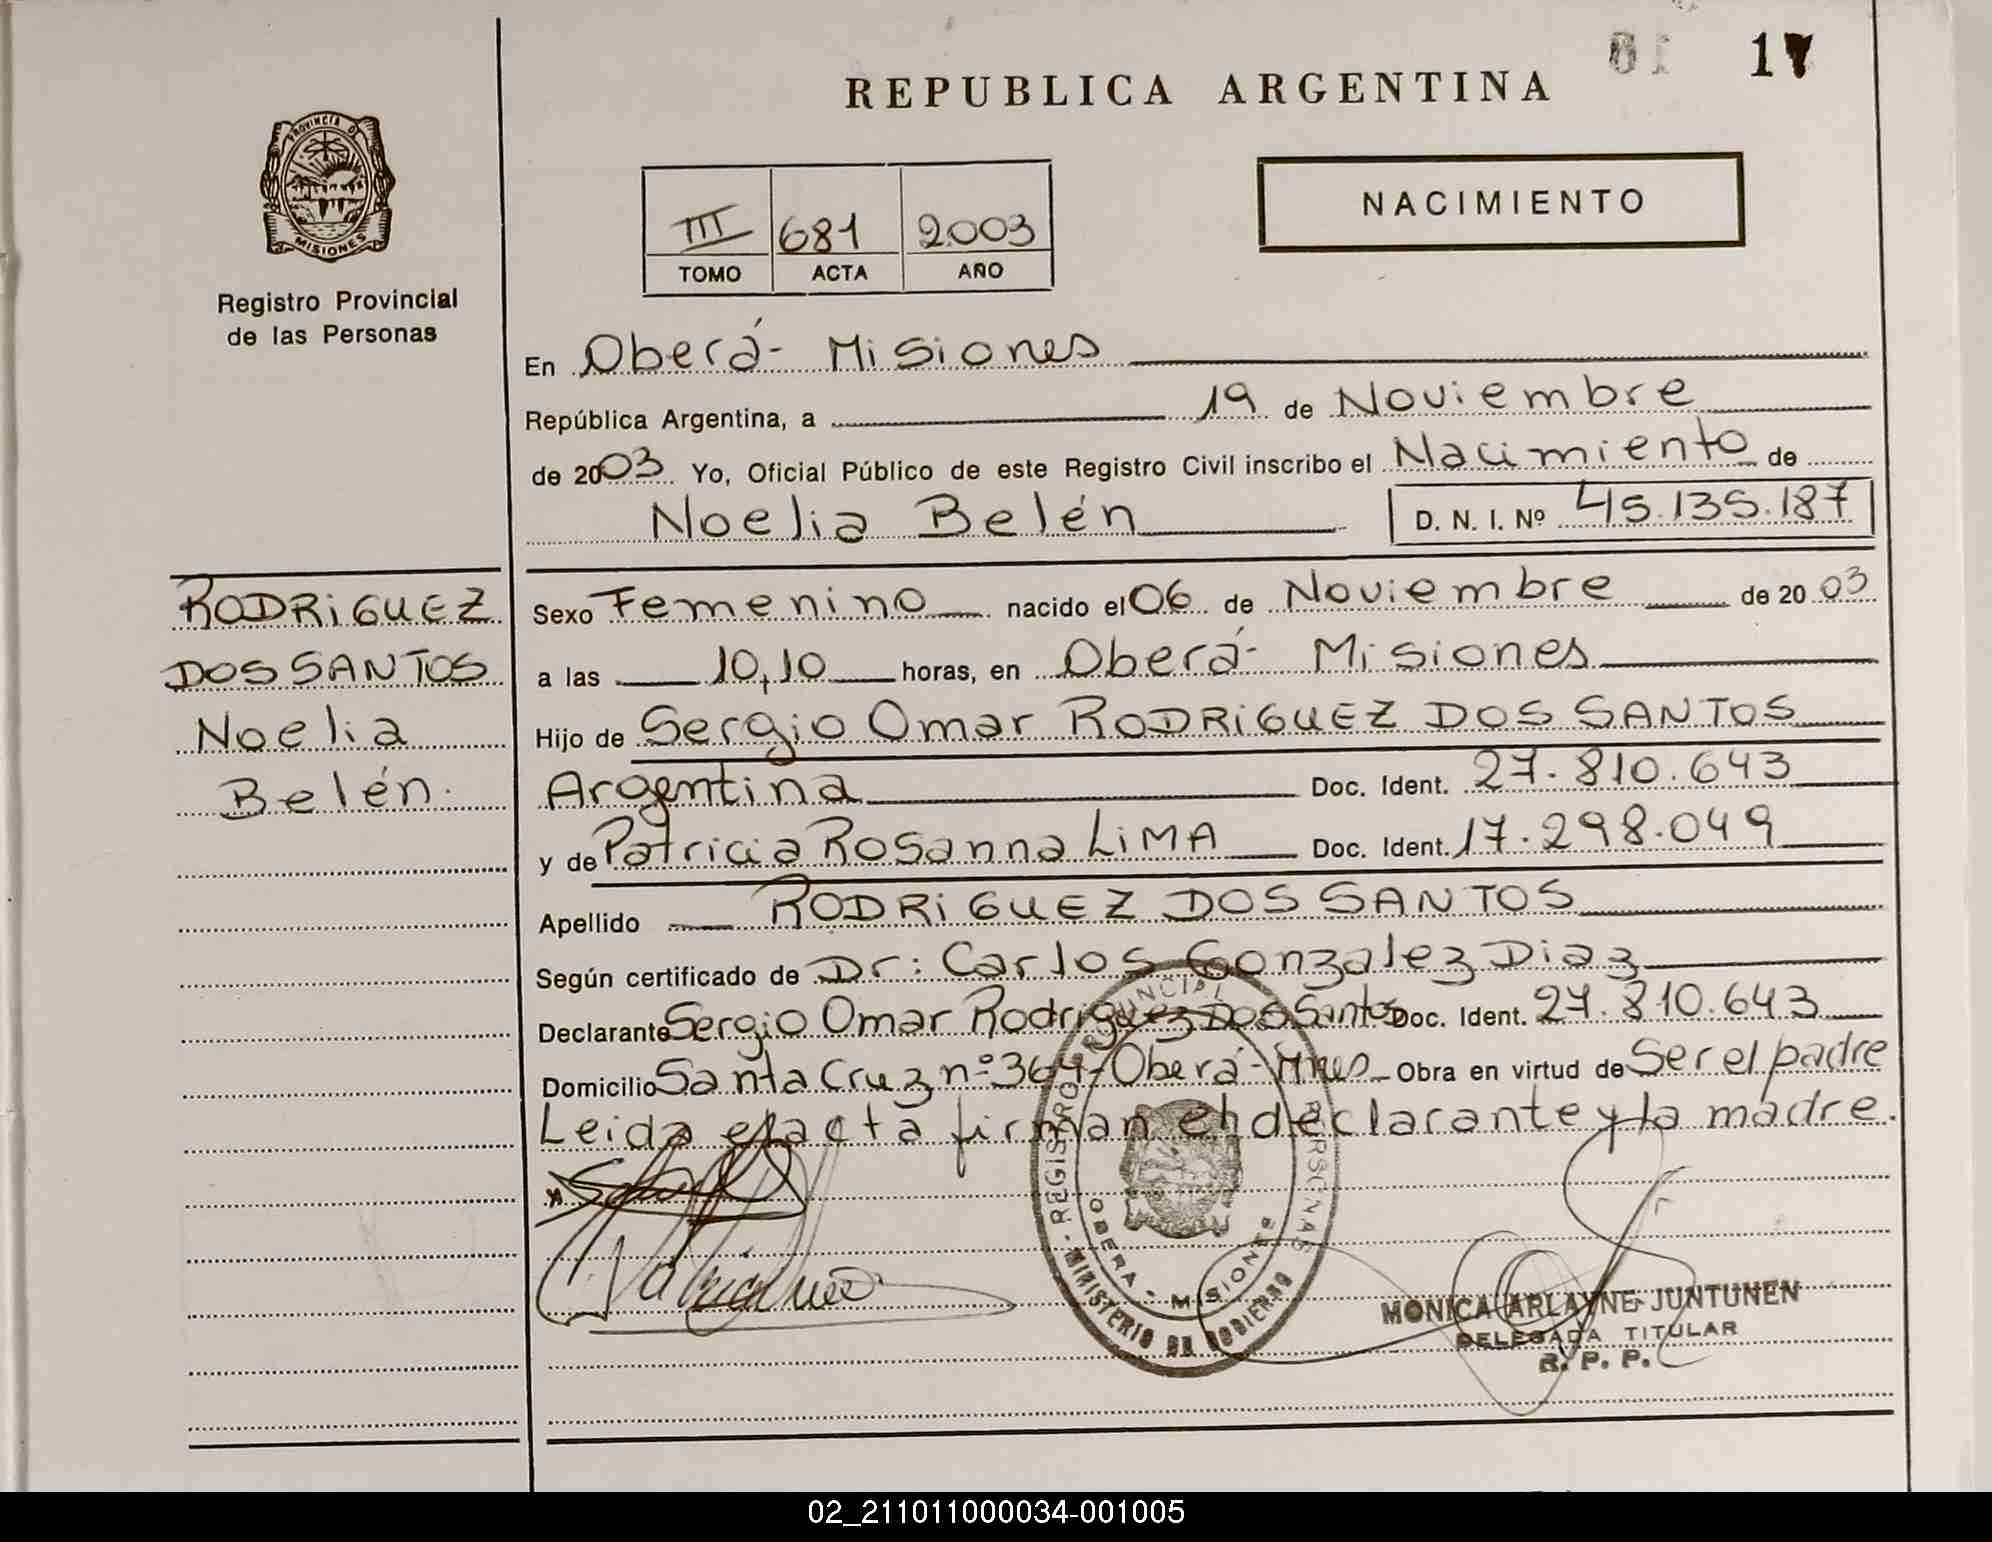 01 17
REPUBLICA ARGENTINA
PROVINCIA DE
MISIONES
Registro Provincial
de las Personas
NACIMIENTO
III 681 2003
TOMO ACTA AÑO
En Oberá- Misiones
República Argentina, a 19 de Noviembre
de 2003 Yo, Oficial Público de este Registro Civil inscribo el Nacimiento de
Noelia Belén D. N. I. Nº 45.135.187
RODRIGUEZ
DOS SANTOS
Noelia
Belén.
Sexo Femenino nacido el 06 de Noviembre de 2003
a las 10,10 horas, en Oberá- Misiones
Hijo de Sergio Omar RODRIGUEZ DOS SANTOS
Argentina Doc. Ident. 27.810.643
y de Patricia Rosanna LiMA Doc. Ident. 17.298.049
Apellido RODRIGUEZ DOS SANTOS
Según certificado de Dr: Carlos Gonzalez Diaz
Declarante Sergio Omar Rodriguez Dos Santos Doc. Ident. 27.810.643
Domicilio Santa Cruz nº 364, Oberá- Mnes Obra en virtud de Ser el padre
Leida el acta firman el declarante y la madre.
REGISTRO PERSONAS
OBERA - MISIONES
MINISTERIO DE GOBIERNO
MONICA ARLAYNE JUNTUNEN
DELEGADA TITULAR
R. P. P.
02_211011000034-001005